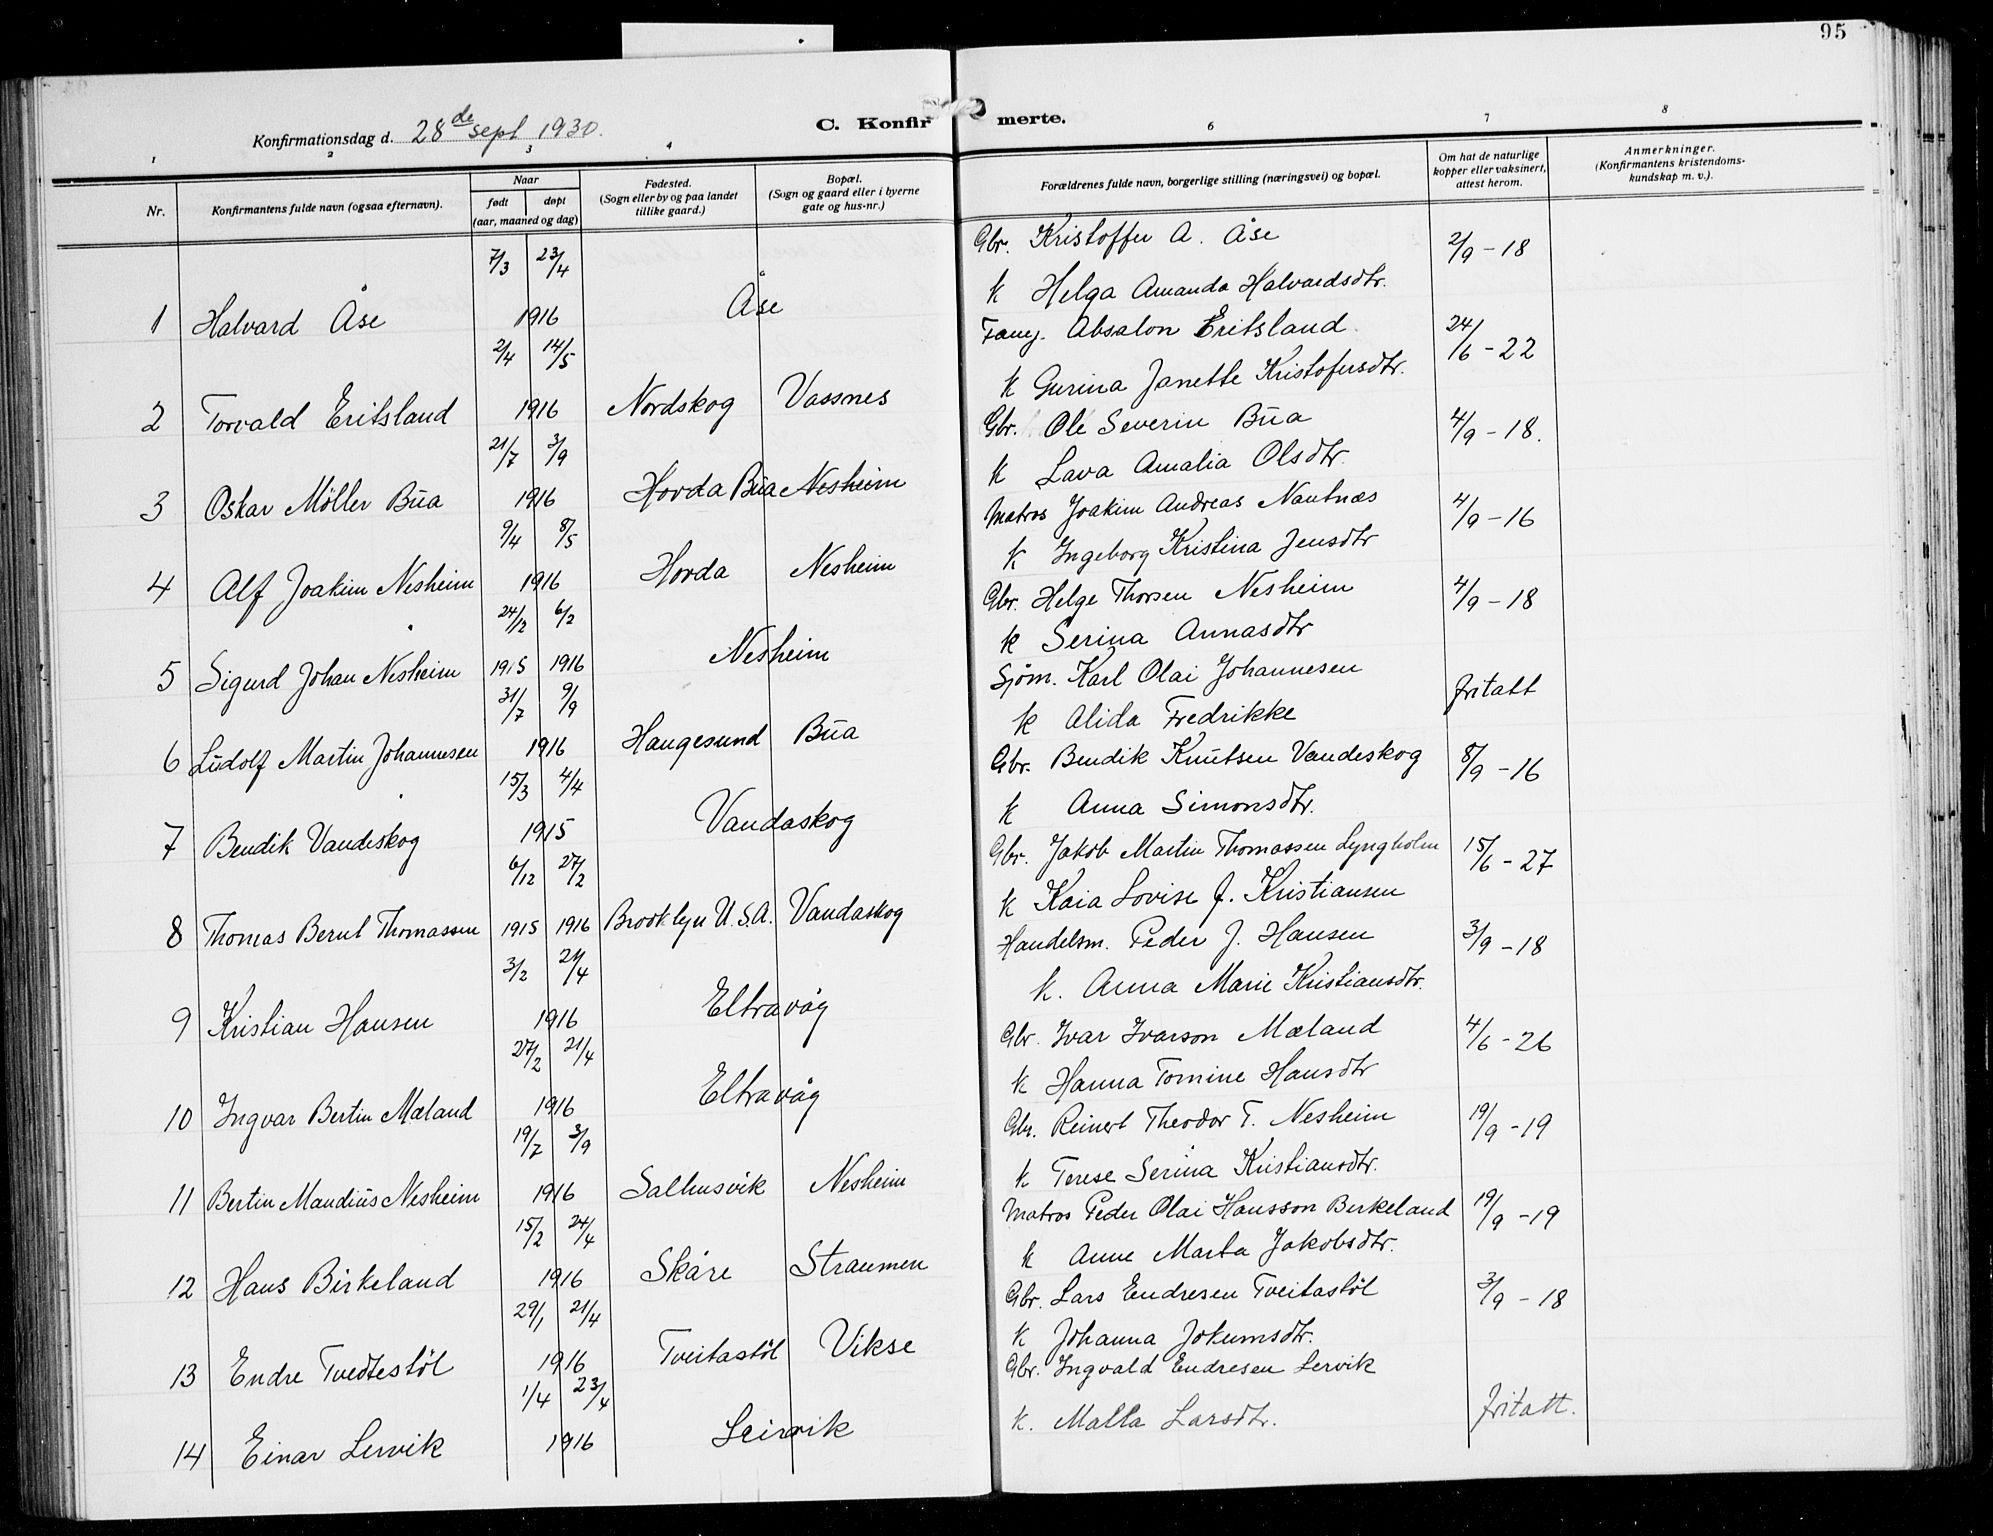 95
Konfirmationsdag d. 28de sept 1930.
C. Konfirmerte.
1 2 3 4 6 7 8
Nr.
Konfirmantens fulde navn (ogsaa efternavn).
Naar
født døpt
(aar, maaned og dag)
Fødested.
(Sogn eller by og paa landet
tillike gaard.)
Bopæl.
(Sogn og gaard eller i byerne
gate og hus-nr.)
Forældrenes fulde navn, borgerlige stilling (næringsvei) og bopæl.
Om hat de naturlige
kopper eller vaksinert,
attest herom.
Anmerkninger.
(Konfirmantens kristendoms-
kundskap m. v.).
7/3 23/4 Gbr. Kristoffer A. Åse 2/9 - 18
1 Halvard Åse 1916 Åse k Helga Amanda Halvardsdtr.
2/4 14/5 Fang. Absalon Eritsland 24/6 - 22
2 Torvald Eritsland 1916 Nordskog Vassnes k Gurina Janette Kristofersdtr.
21/7 3/9 Gbr. Ole Severin Bua 4/9 - 18.
3 Oskar Möller Bua 1916 Horda Bua Nesheim k Lava Amalia Olsdtr.
9/4 8/5 Matros Joakim Andreas Nautnæs 4/9 - 16
4 Alf Joakim Nesheim 1916 Horda Nesheim k Ingeborg Kristina Jensdtr
24/12 6/2 Gbr. Helge Thorsen Nesheim 4/9 - 18
5 Sigurd Johan Nesheim 1915 1916 Nesheim k Serina Annasdtr
31/7 9/9 Sjöm. Karl Olai Johannesen fritatt
6 Ludolf Martin Johannesen 1916 Haugesund Bua k Alida Fredrikke
15/3 4/4 Gbr. Bendik Knutsen Vandeskog 8/9 - 16
7 Bendik Vandeskog 1915 Vandaskog k Anna Simonsdtr.
6/12 27/2 Gbr. Jakob Martin Thomassen Lyngholm 15/6 - 27
8 Thomas Bernt Thomassen 1915 1916 Brooklyn U.S.A. Vandaskog k Kaia Lovise J. Kristiansen
3/2 24/4 Handelsm. Peder J. Hansen 3/9 - 18
9 Kristian Hansen 1916 Eltravåg k. Anna Marie Kristiansdtr.
27/2 21/4 Gbr. Ivar Ivarson Mæland 4/6 - 26
10 Ingvar Bertin Mæland 1916 Eltravåg k Hanna Tomine Hansdtr
19/7 3/9 Gbr. Reinert Theodor T. Nesheim 19/9 - 19
11 Bertin Mandius Nesheim 1916 Salhusvik Nesheim k Terese Serina Kristiansdtr.
15/2 24/4 Matros Peder Olai Hansson Birkeland 19/9 - 19
12 Hans Birkeland 1916 Skåre Straumen k Anne Marta Jakobsdtr.
29/1 21/4 Gbr. Lars Endresen Tveitastöl 3/9 - 18
13 Endre Tvedtestöl 1916 Tveitastöl Vikse k Johanna Jokumsdtr.
1/4 23/4 Gbr. Ingvald Endresen Lervik fritatt.
14 Einar Lervik 1916 Leirvik k. Malla Larsdtr.